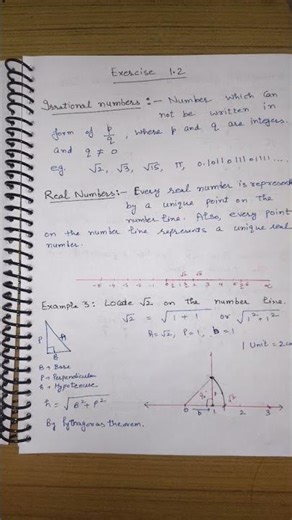 Exercise 1.2
Irrational numbers :- Number which can
not be written in
form of p/q, where p and q are integers.
and q ≠ 0
eg. √2, √3, √15, π, 0.10110111011110....
Real Numbers:- Every real number is represented
by a unique point on the
number line. Also, every point
on the number line represents a unique real
number.
Example 3: Locate √2 on the number line.
√2 = √1+1 or √1²+1²
h=√2, P=1, b=1
1 Unit = 2cm
P
B
B → Base
P → Perpendicular
h = √B²+P²
By Pythagoras theorem.
0 b 1 √2 2 3